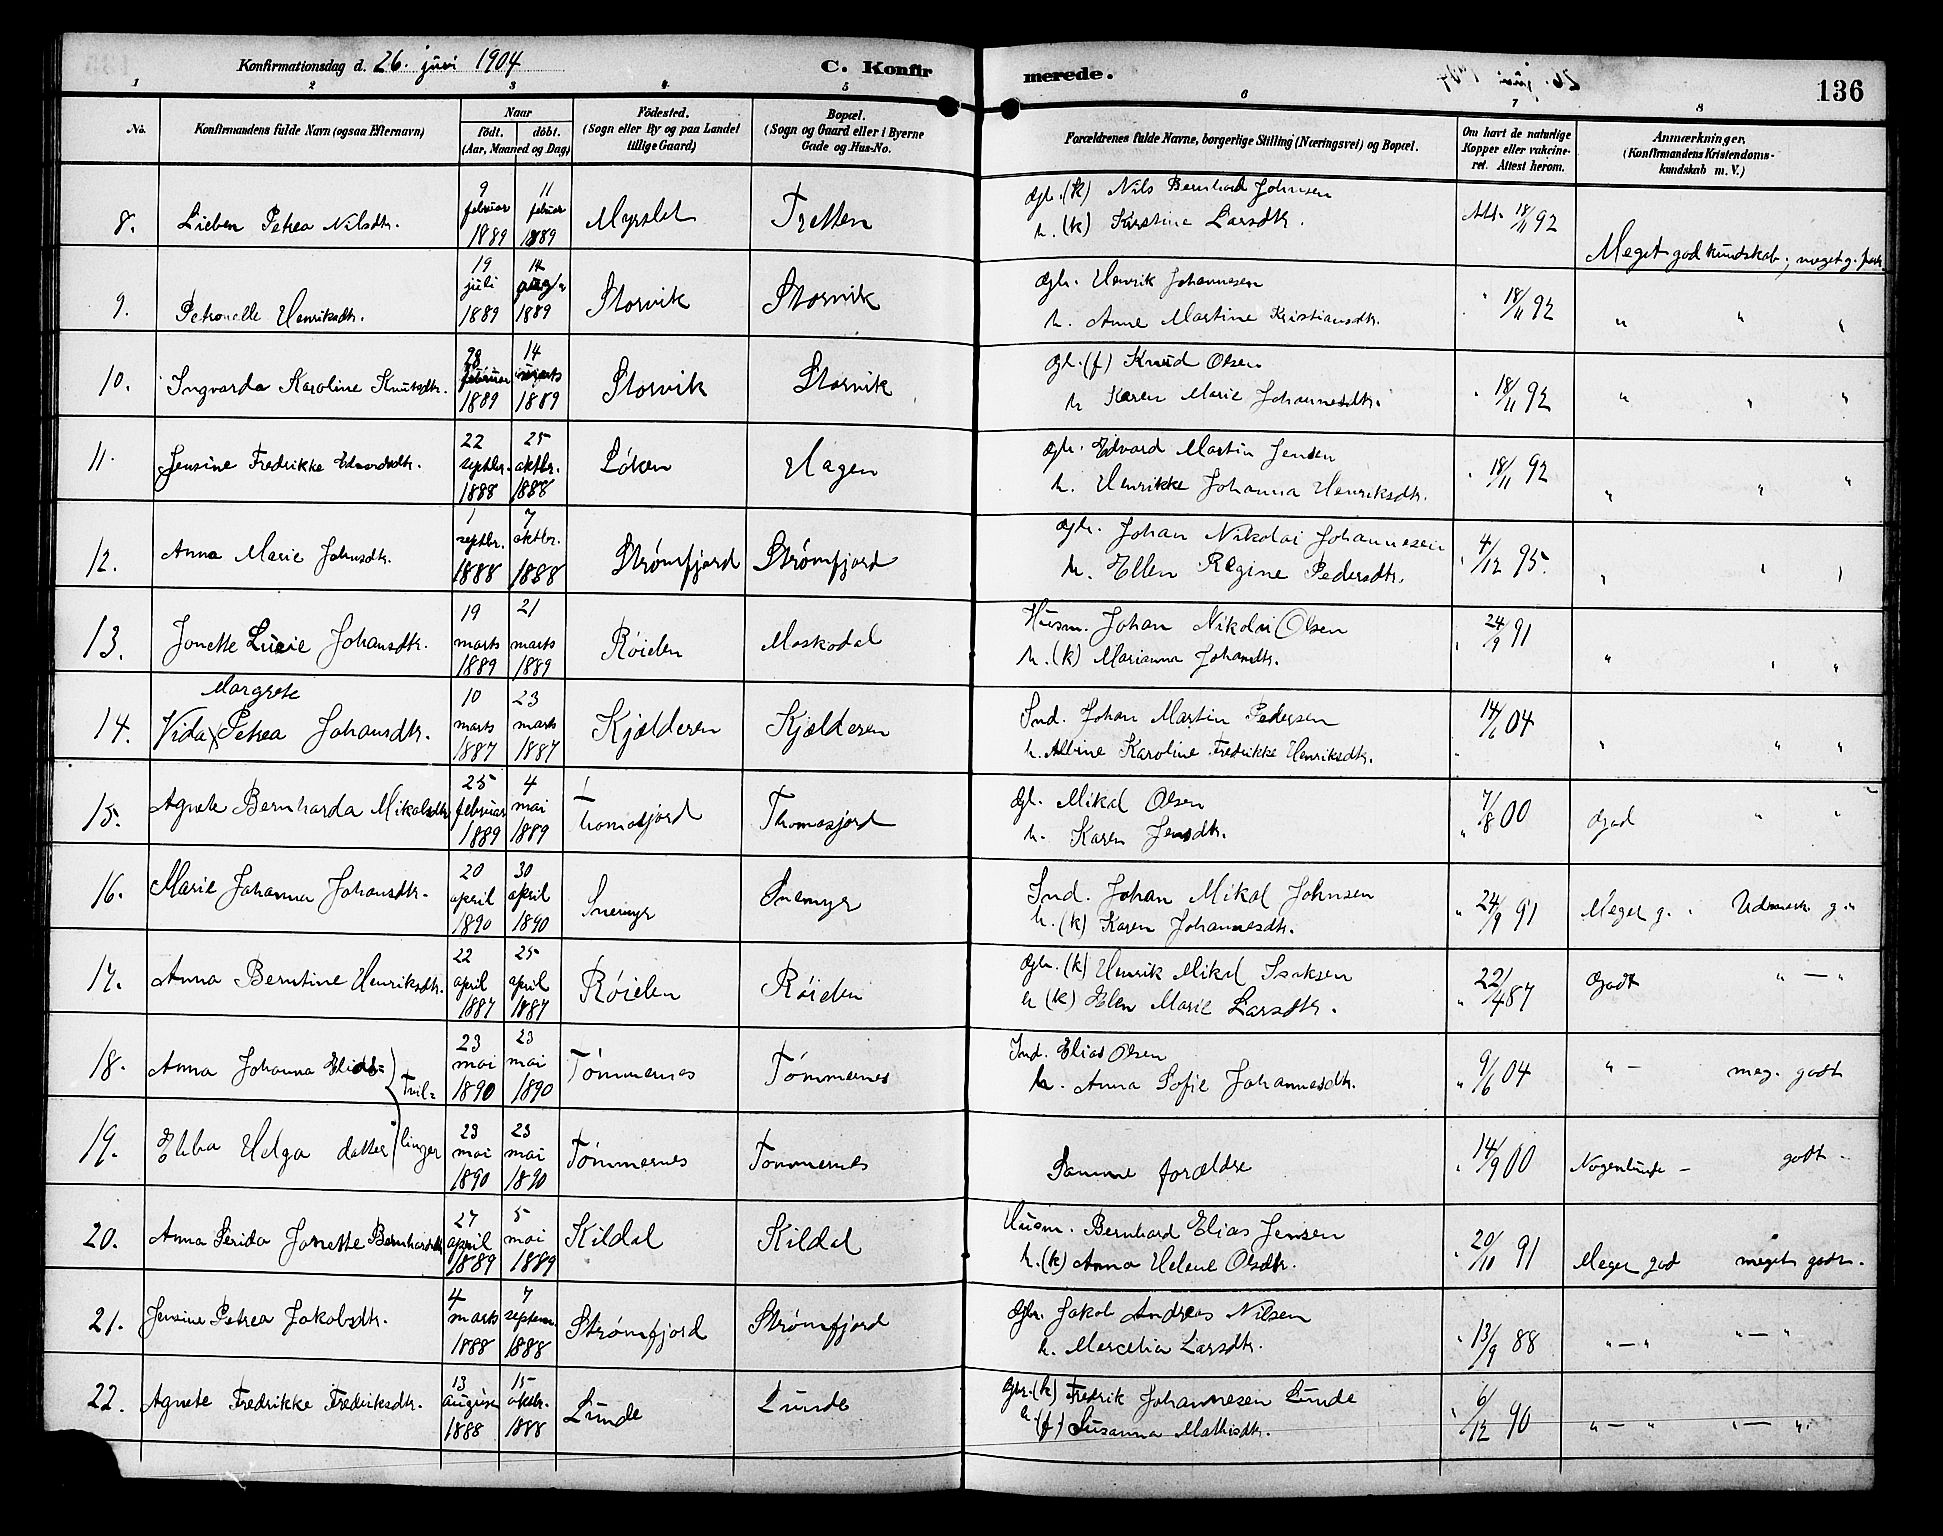 Konfirmationsdag d. 26. juni 1904
C. Konfirmerede.
136
1 2 3 4 5 6 7 8
No.
Konfirmandens fulde Navn (ogsaa Efternavn)
Naar
födt. döbt.
(Aar, Maaned og Dag)
Födested.
(Sogn eller By og paa Landet
tillige Gaard)
Bopæl.
(Sogn og Gaard eller i Byerne
Gade og Hus-No.
Forældrenes fulde Navne, borgerlige Stilling (Næringsvei) og Bopæl.
Om havt de naturlige
Kopper eller vakcine-
ret. Attest herom.
Anmærkninger.
(Konfirmandens Kristendoms-
kundskab m. V.)
8. Lieben Petrea Nilsdtr. 9 februar 1889 11 februar 1889 Myrslet Tretten
Gbr. (k) Nils Bernhard Johnsen
h. (k) Kirstine Larsdtr.
Att. 18/11 92 Meget god kundskab;
9. Petronelle Henriksdtr. 19 juli 1889 1889 Storvik Storvik
Gbr. Henrik Johannesen
h. Anne Martine Kristiansdtr.
" 18/11 92 " " "
10. Ingvarda Karoline Knutsdtr. 28 februar 1889 14 marts 1889 Storvik Storvik
gbr. (f) Knud Olsen
h Karen Marie Johannesdtr.
" 18/11 92 " " "
11. Jensine Fredrikke Edvardsdtr. 22 septbr. 1888 25 oktbr. 1888 Løken Hagen
gbr. Edvard Martin Jensen
h. Henrikke Johanna Henriksdtr.
" 18/11 92 " " "
12. Anna Marie Johnsdtr. 1 septbr. 1888 7 oktbr. 1888 Strømfjord Strømfjord
Gbr. Johan Nikolai Johannesen
h. Ellen Regine Pedersdtr.
" 4/12 95. " " "
13. Jonette Lucie Johansdtr. 19 marts 1889 21 marts 1889 Røielen Maskodal
Husm. Johan Nikolai Olsen
h. (k) Marianna Johandtr.
" 24/9 91 " " "
Margrete
14. Vida Petrea Johansdtr. 10 marts 1887 23 marts 1887 Kjælderen Kjælderen
Ind. Johan Martin Pedersen
h. Albine Karoline Fredrikke Henriksdtr.
" 04 " " "
15. Agnete Bernharda Mikalsdtr 25 februar 1889 4 mai 1889 Thomasjord Thomasjord
Gbr. Mikal Olsen
h. Karen Jensdtr.
" 7/8 00 God " "
16. Marie Johanna Johansdtr. 20 april 1890 30 april 1890 Snemyr Snemyr
Ind. Johan Mikal Johnsen
h. (k) Karen Johannesdtr.
" 24/9 91 Meget g. Udmærk g.
17. Anna Berntine Henriksdtr. 22 april 1887 25 april 1887 Røielen Røielen
Gbr. (k) Henrik Mikal Isaksen
h (k) Elen Marie Larsdtr.
" 22/4 87 Godt " — "
18. Anna Johanna Elias= Tvil= 23 mai 1890 23 mai 1890 Tömmernes Tömmernes
Ind. Elias Olsen
h. Anna Sofie Johannesdtr.
" 9/6 04 " — meg. godt
19. Ebba Helga datter linger 23 mai 1890 23 mai 1890 Tömmernes Tömmernes
Samme forældre
" 14/9 00 Nogenlunde — godt
20. Anna Serida Jonette Bernhardsdtr 27 april 1889 5 mai 1889 Kildal Kildal
Husm. Bernhard Elias Jensen
h. (k) Anna Helene Olsdtr.
" 20/10 91 Meget god meget godt.
21. Jensine Petrea Jakobsdtr. 4 marts 1888 7 septem. 1888 Strømfjord Strømfjord
Gbr. Jakob Andreas Nilsen
h. Marcelia Larsdtr.
" 13/9 88 " — " " — "
22. Agnete Fredrikke Fredriksdtr. 13 august 1888 15 oktbr. 1888 Lunde Lunde
Gbr. (k) Fredrik Johannesen Lunde
h. (f) Susanna Mathisdtr.
" 6/12 90 " — " " — "